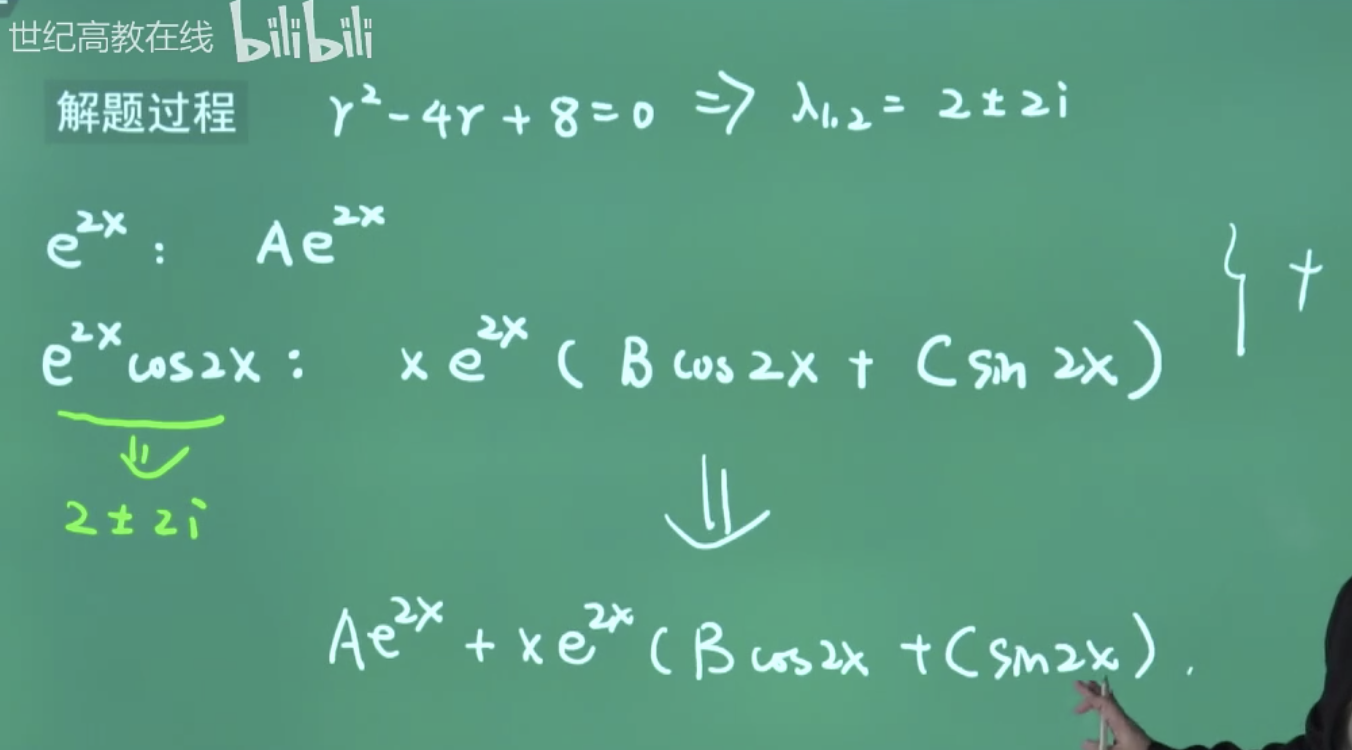 世纪高教在线 bilibili
解题过程 r²-4r+8=0 ⇒ λ₁.₂= 2±2i
e^{2x}: Ae^{2x}
} +
e^{2x}cos2x: xe^{2x}(Bcos2x+Csin2x)
⇓
⇓
2±2i
Ae^{2x}+xe^{2x}(Bcos2x+Csin2x).